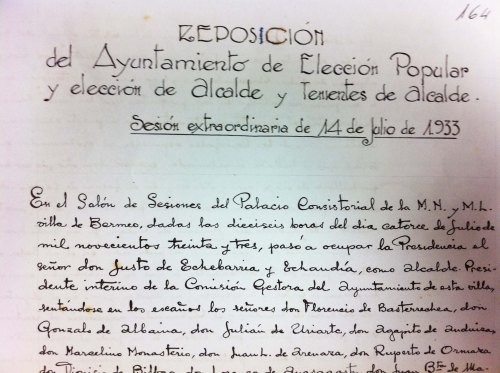 164
REPOSICIÓN
del Ayuntamiento de Elección Popular
y elección de Alcalde y Tenientes de Alcalde.
Sesión extraordinaria de 14 de Julio de 1933
En el Salón de Sesiones del Palacio Consistorial de la M.N. y M.L.
villa de Bermeo, dadas las dieciseis horas del día catorce de Julio de
mil novecientos treinta y tres, pasó a ocupar la Presidencia el
señor don Justo de Echebarria y Echandía, como Alcalde-Presi
dente interino de la Comisión Gestora del Ayuntamiento de esta villa,
sentándose en los escaños los señores don Florencio de Basterrechea, don
Gonzalo de Albaina, don Julián de Uriarte, don Agapito de Anduiza,
don Marcelino Monasterio, don Juan L. de Arenaza, don Ruperto de Ormaza,
don Dionisio de Bilbao, don de don Juan Bta. de Ma-